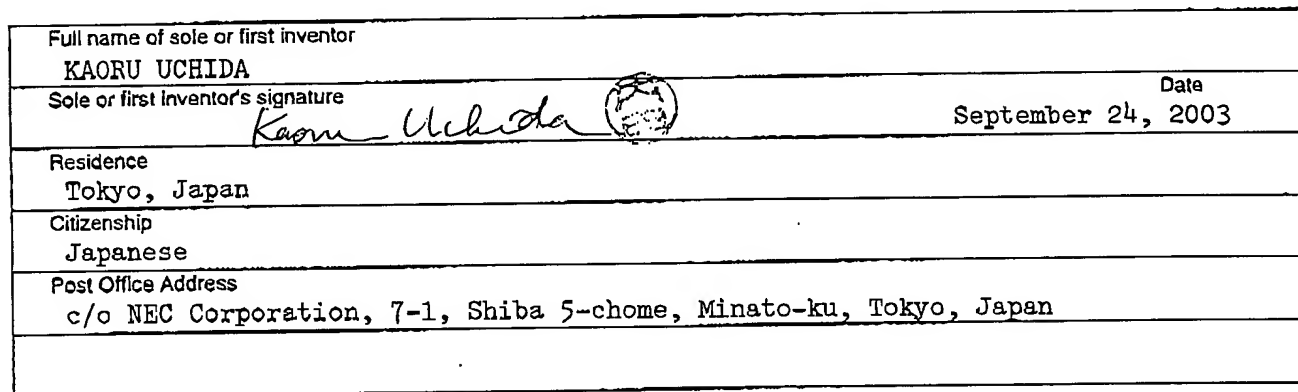 Full name of sole or first inventor
KAORU UCHIDA
Sole or first inventor's signature
Kaoru Uchida
Date
September 24, 2003
Residence
Tokyo, Japan
Citizenship
Japanese
Post Office Address
c/o NEC Corporation, 7-1, Shiba 5-chome, Minato-ku, Tokyo, Japan